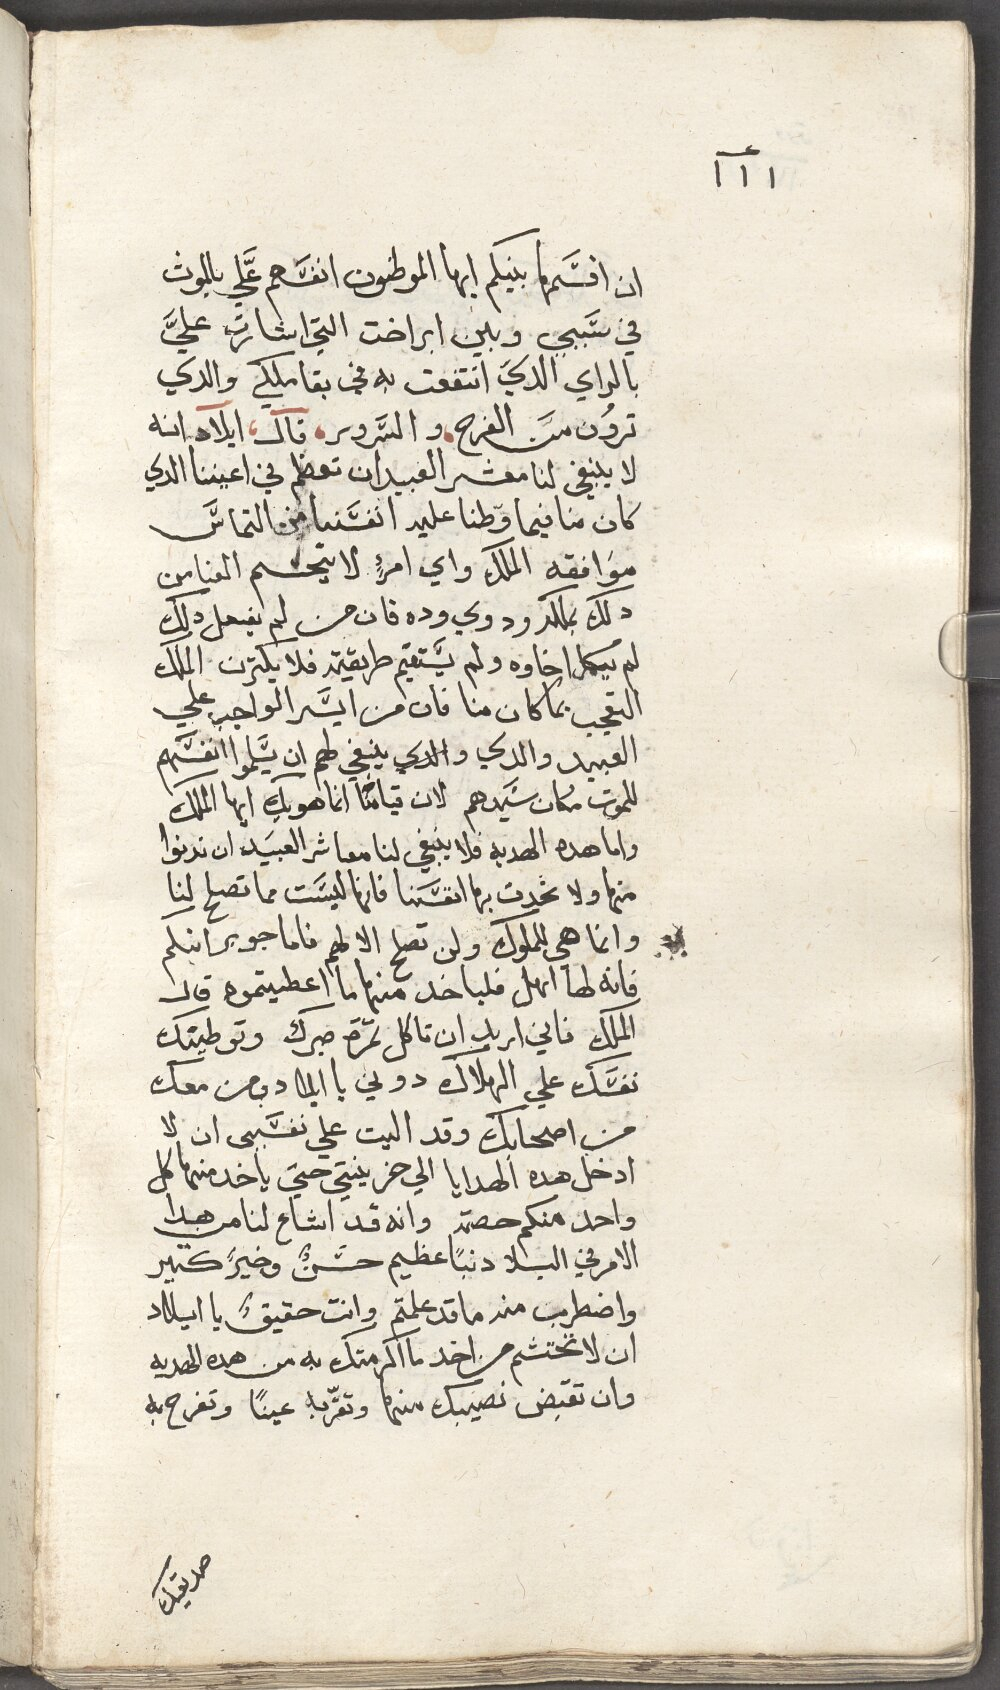 ١١١
ان اقسمها بينكم ايها الموطنون انفسهم علي بالموت
في سببي وبين ابراخت التي اشارت عليَّ
بالراي الدي انتفعت به في بقا ملكي والدي
ترون من الفرح والسرور قال ايلاد انه
لا ينبغي لنا معشر العبيد ان تعظم في اعيننا الدي
كان منا فيما وطنا عليه انفسنا من التماس
موافقه الملك واي امرءٍ لا يتجشم العنا من
دلك بملكه ودوي وده فان من لم يفعل دلك
لم يكمل اخاوه ولم يستقيم طريقته فلا يكثرن الملك
التعجب بما كان منا فان من ايسر الواجب علي
العبيد والدي والدي ينبغي لهم ان يسلموا انفسهم
للموت مكان سيدهم لان قيامنا انما هو بك ايها الملك
واما هده الهديه فلا ينبغي لنا معاشر العبيد ان ندنوا
منها ولا نحدث بها انفسنا فانها ليست مما تصلح لنا
وانما هي للملوك ولن تصلح الا لهم فاما جوير ابنكم
فانه لها اهل فلياخد منها ما اعطيتموه قال
الملك فاني اريد ان تاكل ثمرة صبرك وتوطيتك
نفسك علي الهلاك دوني يا ايلاد ومن معك
من اصحابك وقد اليت علي نفسي ان لا
ادخل هده الهدايا الي خزينتي حتي ياخد منها كل
واحد منكم حصته وانه قد اشاع لنا من هدا
الامر في البلاد نبًا عظيم حسنٌ وخيرً كتير
واضطرب منه ما قد علمتم وانت حقيقٌ يا ايلاد
ان لا تحتشم من اخد ما اكرمتك به من هده الهديه
وان تقبض نصيبك منها وتقرّ به عينًا وتفرح به
صديقك